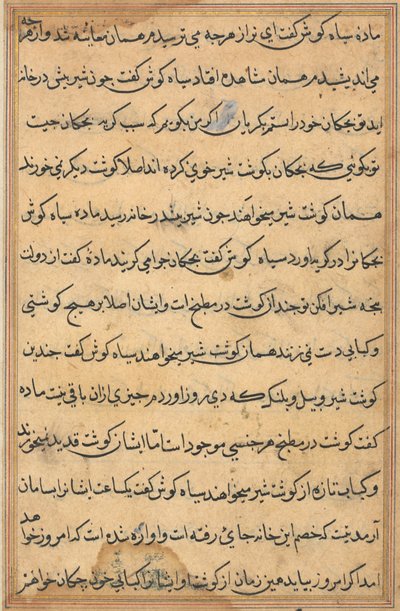 ماده سیاه کوش کفت ای نر از هرچه می ترسیدم همان معاینه شد و از هرچه
می اندیشیدم همان مشاهده افتاد سیاه کوش کفت چون شیر پیش در خانه
اید تو بچکان خود را ستم بکریان اکر من بکویم که سبب کریه بچکان چیست
تو بکوئی که بچکان بکوشت شیر خوی کرده اند اصلا کوشت دیکر نمی خورند
همان کوشت شیر میخواهند چون شیر بدر خانه رسید ماده سیاه کوش
بچکانرا در کریه اورد سیاه کوش کفت بچکان چرا می کریند ماده کفت از دولت
پنجه شیر افکن تو چند از کوشت در مطبخ است و ایشان اصلا بر هیچ کوشتی
و کبابی دست نمی زنند همان کوشت شیر میخواهند سیاه کوش کفت چندین
کوشت شیر و پیل و پلنک که دی روز اوردم چیزی ازان باقی نیست ماده
کفت کوشت در مطبخ هر جنسی موجود است اما ایشان کوشت قدید نمیخورند
و کبابی تازه از کوشت شیر میخواهند سیاه کوش کفت یکساعت ایشانرا بسامان
آر مدتیست که خصم این خانه جائی رفته است و اوازه شده است که امروز خواهد
امد اکر امروز بیاید همین زمان از کوشت او ایشانرا کبابی خود چکان خواهم